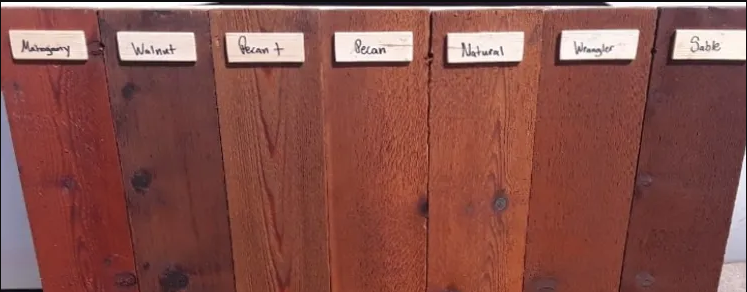 Mahogany
Walnut
Pecan +
Pecan
Natural
Wrangler
Sable